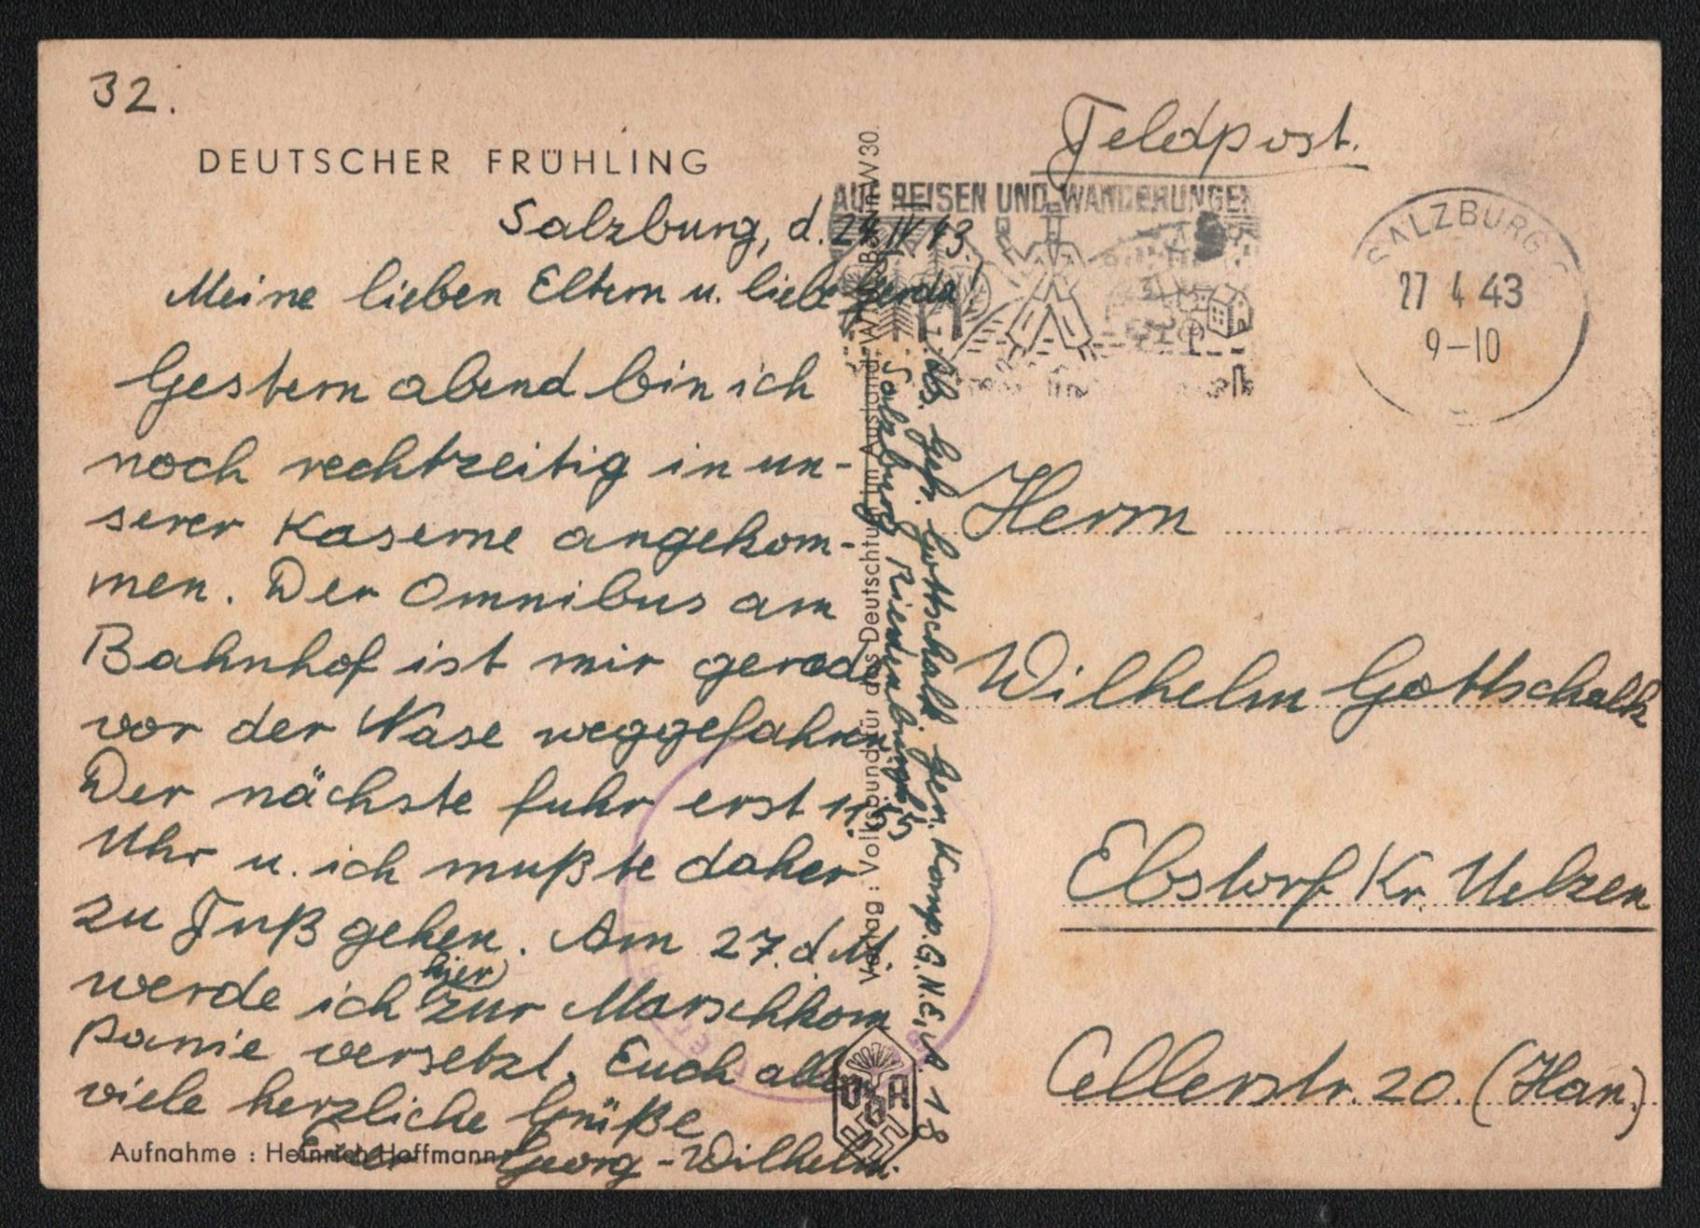 32.
DEUTSCHER FRÜHLING
Salzburg, d. 24. IV 43.
Meine lieben Eltern u. liebe Gerda!
Gestern abend bin ich
noch rechtzeitig in un-
serer Kaserne angekom-
men. Der Omnibus am
Bahnhof ist mir gerade
vor der Nase weggefahren.
Der nächste fuhr erst 11.55
Uhr u. ich mußte daher
zu Fuß gehen. Am 27. d. M.
werde ich hier zur Marschkom
panie versetzt. Euch allen
viele herzliche Grüße
Euer Georg-Wilhelm.
Aufnahme : Heinrich Hoffmann
Verlag : Volksbund für das Deutschtum im Ausland, Berlin W 30.
Abs. Gefr. Gottschalk Gen. Komp. G.N.E.A 18
Salzburg Riedenburg
VDA
Feldpost.
AUF REISEN UND WANDERUNGEN
SALZBURG
27 4 43
9–10
Herrn
Wilhelm Gottschalk
Ebstorf Kr. Uelzen
Cellerstr. 20. (Han.)